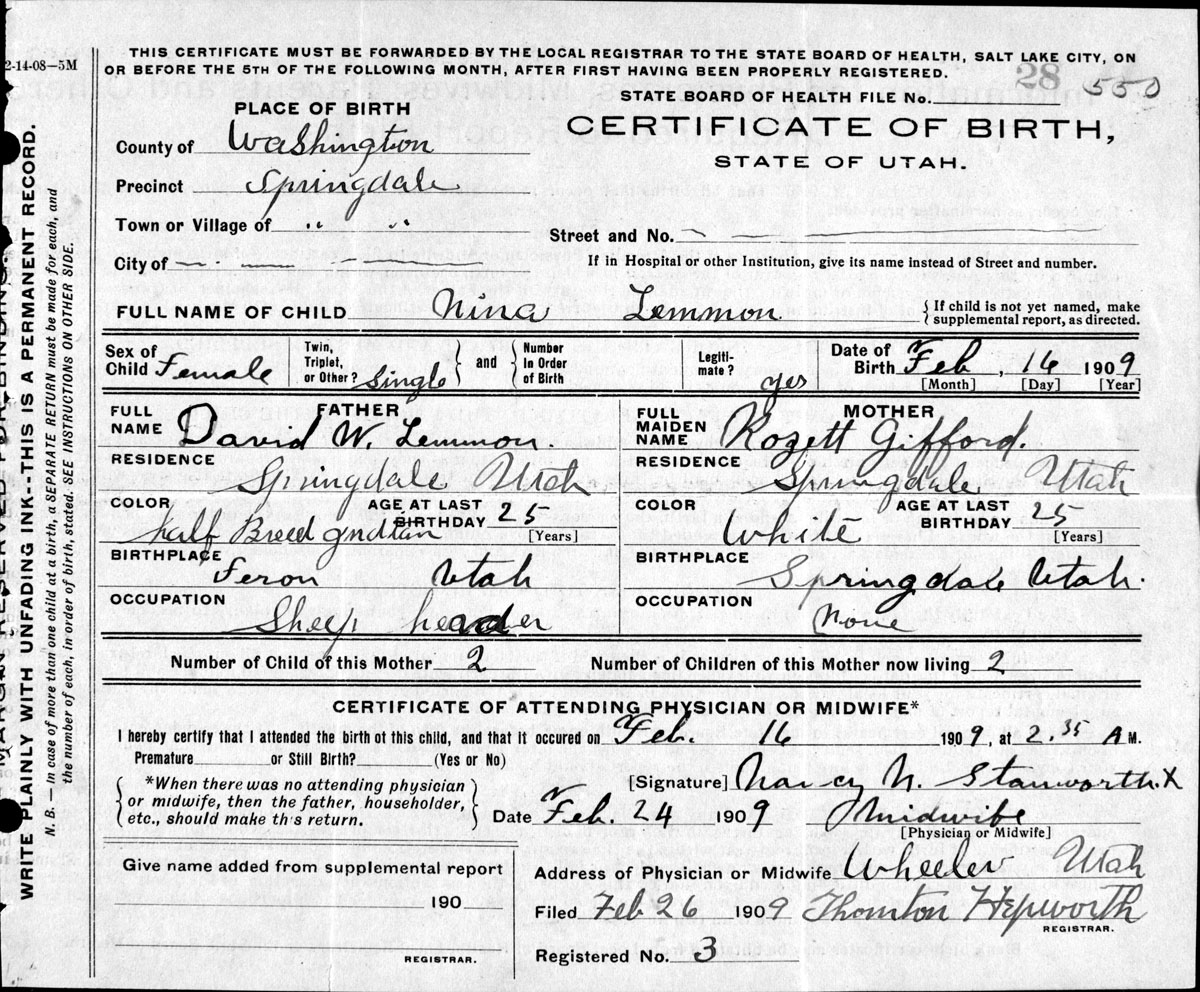 2-14-08—5M
THIS CERTIFICATE MUST BE FORWARDED BY THE LOCAL REGISTRAR TO THE STATE BOARD OF HEALTH, SALT LAKE CITY, ON
OR BEFORE THE 5TH OF THE FOLLOWING MONTH, AFTER FIRST HAVING BEEN PROPERLY REGISTERED.
28 550
STATE BOARD OF HEALTH FILE No.
CERTIFICATE OF BIRTH,
STATE OF UTAH.
PLACE OF BIRTH
County of Washington
Precinct Springdale
Town or Village of " "
Street and No. — — —
City of — — — —
If in Hospital or other Institution, give its name instead of Street and number.
FULL NAME OF CHILD Nina Lemmon
{ If child is not yet named, make
supplemental report, as directed.
Sex of Child Female
Twin, Triplet, or Other? Single } and { Number In Order of Birth
Legiti-mate? yes
Date of Birth Feb, 16 1909
[Month] [Day] [Year]
FATHER
FULL NAME David W. Lemmon.
RESIDENCE Springdale Utah
COLOR half Breed Indian
AGE AT LAST BIRTHDAY 25 [Years]
BIRTHPLACE Feron Utah
OCCUPATION Sheep header
MOTHER
FULL MAIDEN NAME Rozett Gifford.
RESIDENCE Springdale Utah
COLOR White
AGE AT LAST BIRTHDAY 25 [Years]
BIRTHPLACE Springdale Utah.
OCCUPATION None
Number of Child of this Mother 2
Number of Children of this Mother now living 2
CERTIFICATE OF ATTENDING PHYSICIAN OR MIDWIFE*
I hereby certify that I attended the birth of this child, and that it occured on Feb. 16 1909, at 2 35 A M.
Premature or Still Birth? (Yes or No)
{ *When there was no attending physician
or midwife, then the father, householder,
etc., should make th's return. }
[Signature] Nancy N. Stanworth. X
Date Feb. 24 1909 Midwife
[Physician or Midwife]
Give name added from supplemental report
190
REGISTRAR.
Address of Physician or Midwife Wheeler Utah
Filed Feb 26 1909 Thornton Hepworth
REGISTRAR.
Registered No. 3
WRITE PLAINLY WITH UNFADING INK--THIS IS A PERMANENT RECORD.
N. B. — In case of more than one child at a birth, a SEPARATE RETURN must be made for each, and
the number of each, in order of birth, stated. SEE INSTRUCTIONS ON OTHER SIDE.